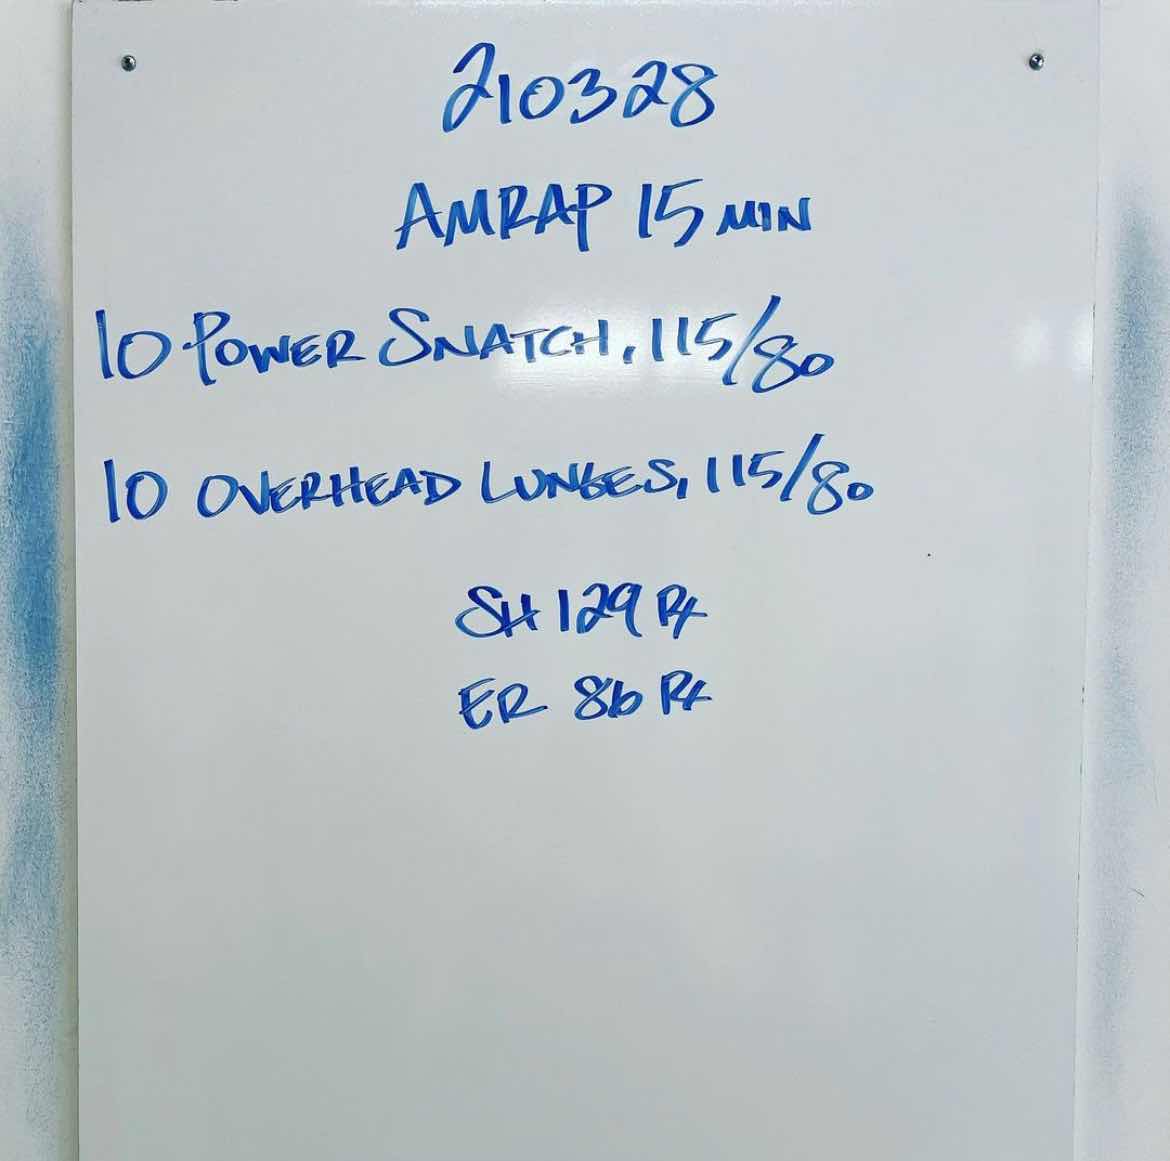 210328
AMRAP 15 MIN
10 POWER SNATCH, 115/80
10 OVERHEAD LUNGES, 115/80
SH 129 Rx
ER 86 Rx